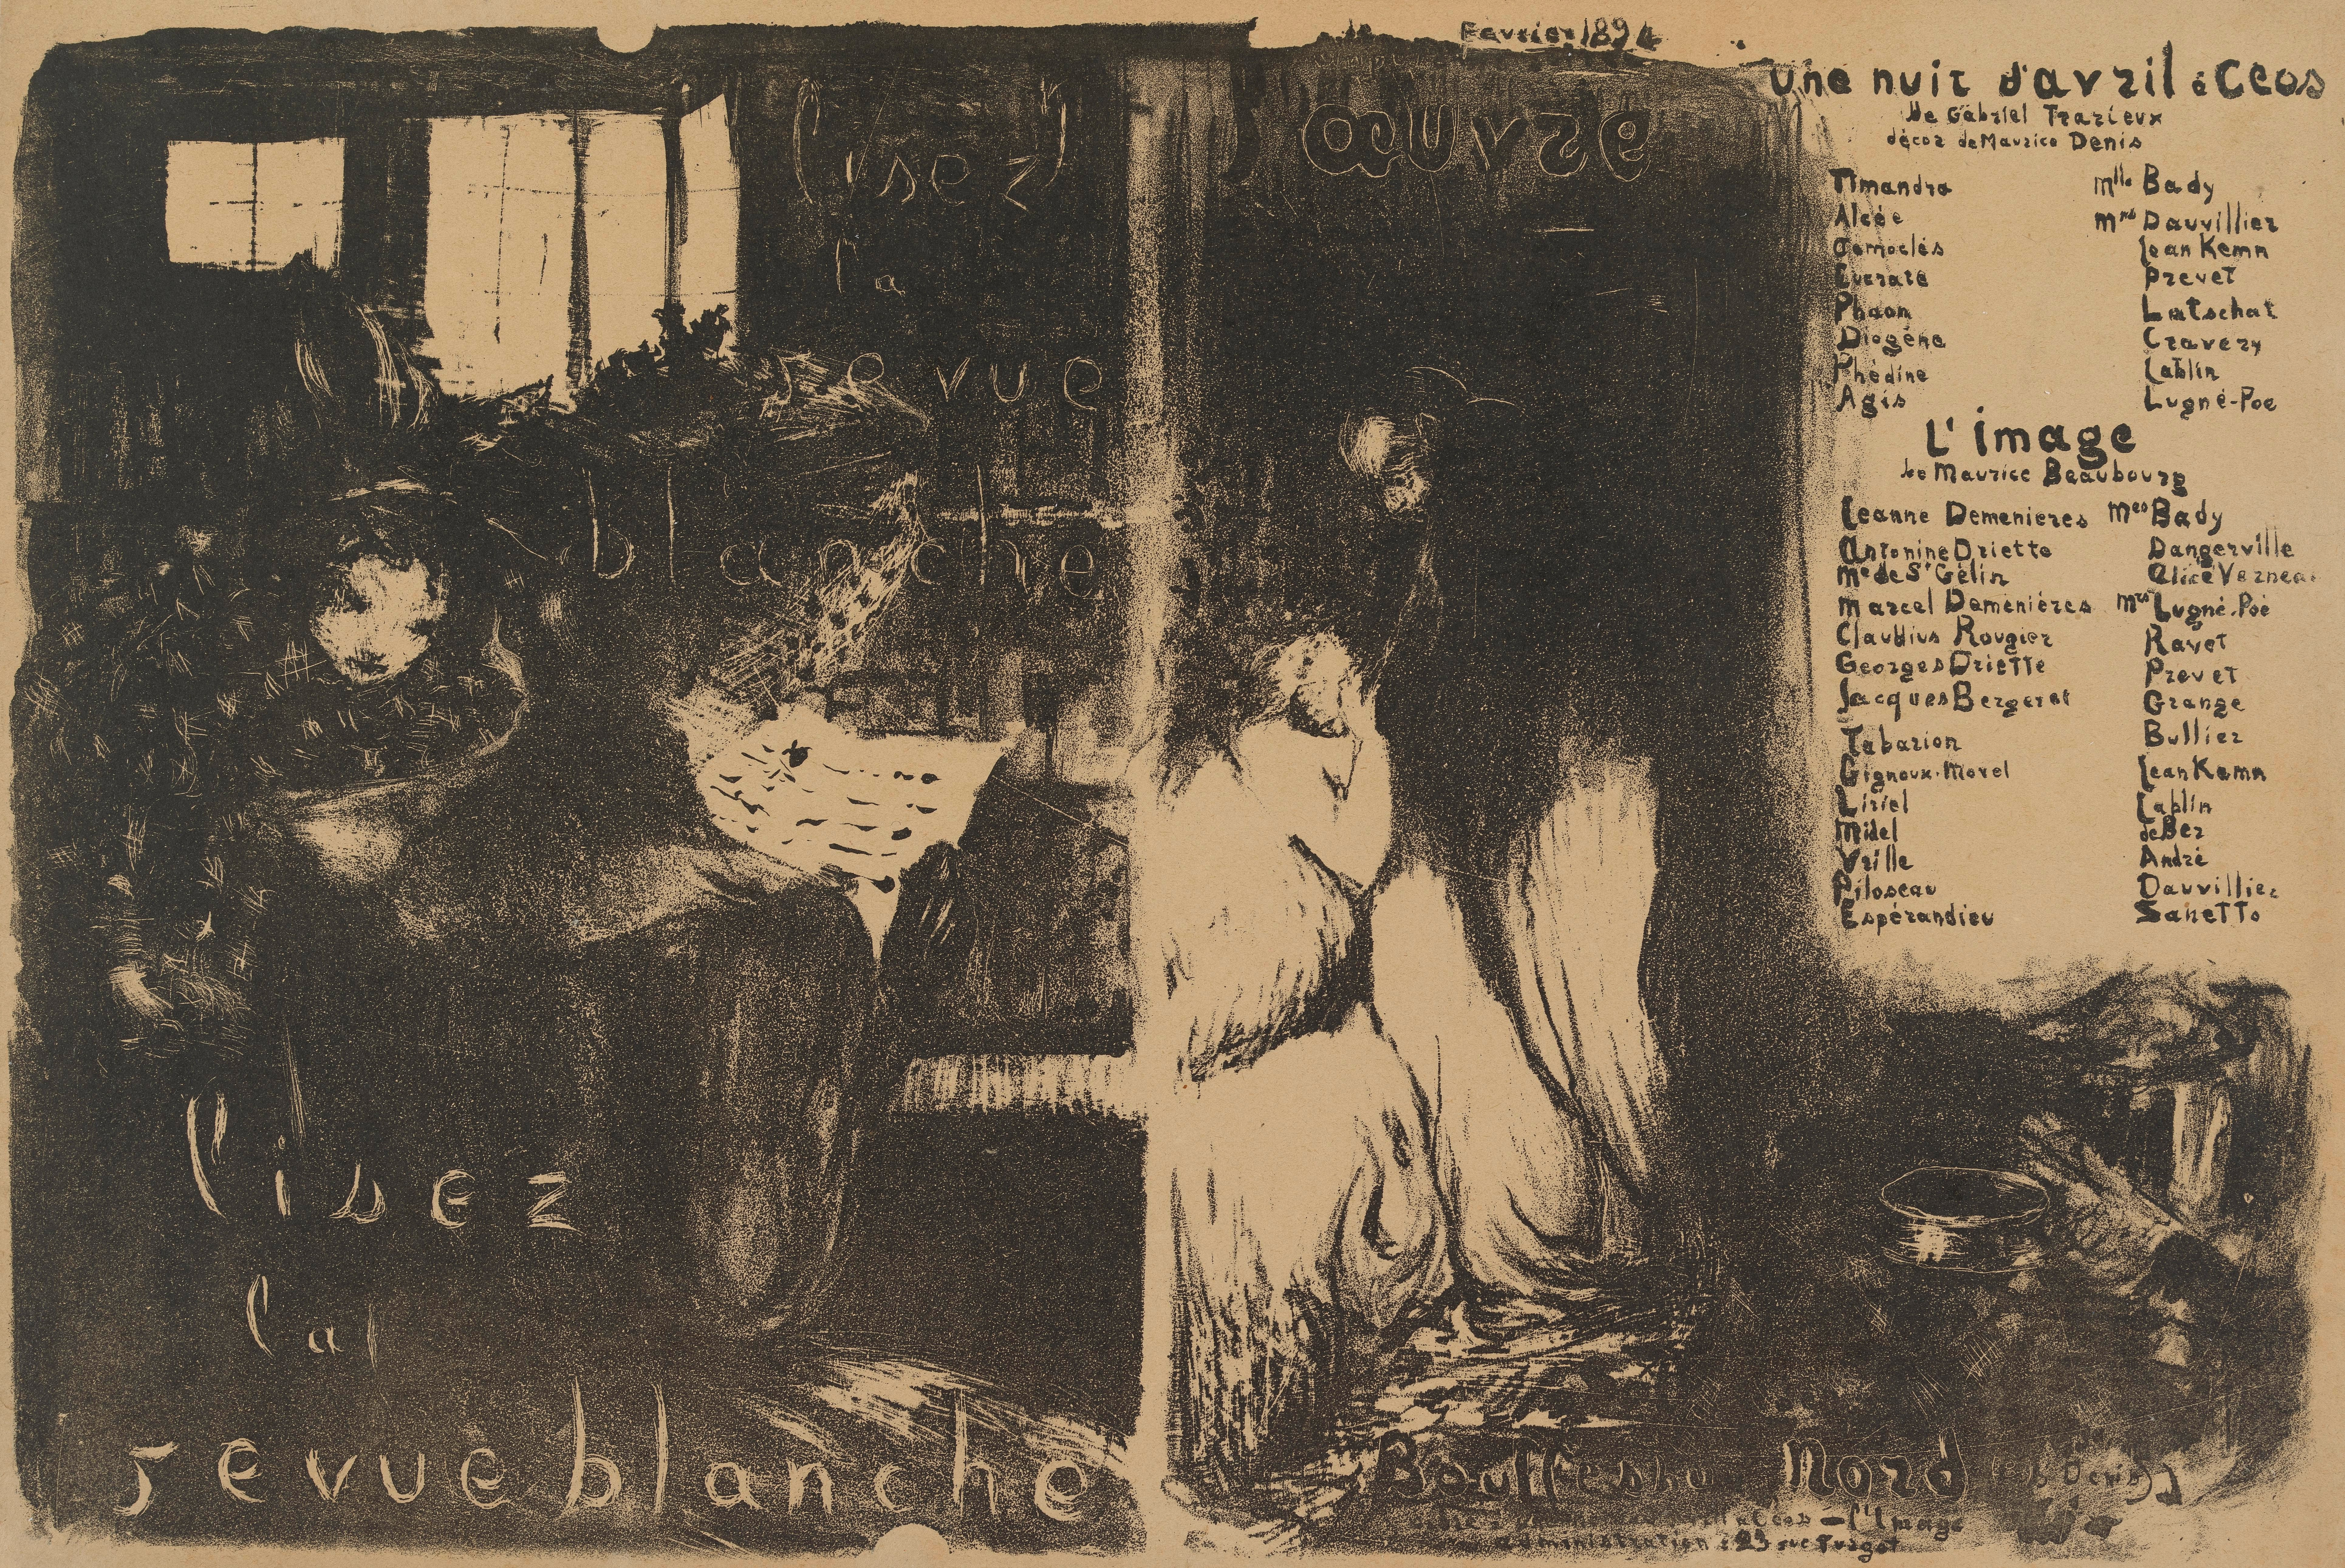 lisez
la
revue
blanche
lisez
la
revue blanche
Fevrier 1894
l'œuvre
une nuit d'avril à Ceos
de Gabriel Trarieux
décor de Maurice Denis
Timandra Mlle Bady
Alcée Mrs Dauvillier
Gemoclés Jean Kemn
Eucrate Prevet
Phaon Latschat
Diogéne Cravery
Phédine Lablin
Agis Lugné-Poe
L'image
de Maurice Beaubourg
Jeanne Demenieres Mes Bady
Antonine Driette Dangerville
Me de St Gélin Alice Vernea
Marcel Demeniéres Mrs Lugné-Poé
Claudius Rougier Ravet
Georges Driette Prevet
Jacques Bergeret Grange
Tabarion Bullier
Gignoux-Morel Jean Kemn
Liriel Lablin
Midel de Ber
Vrille André
Piloseau Dauvillier
Espérandieu Sanetto
Bouffes du Nord
Céos - l'Image
administration: 23 rue Turgot